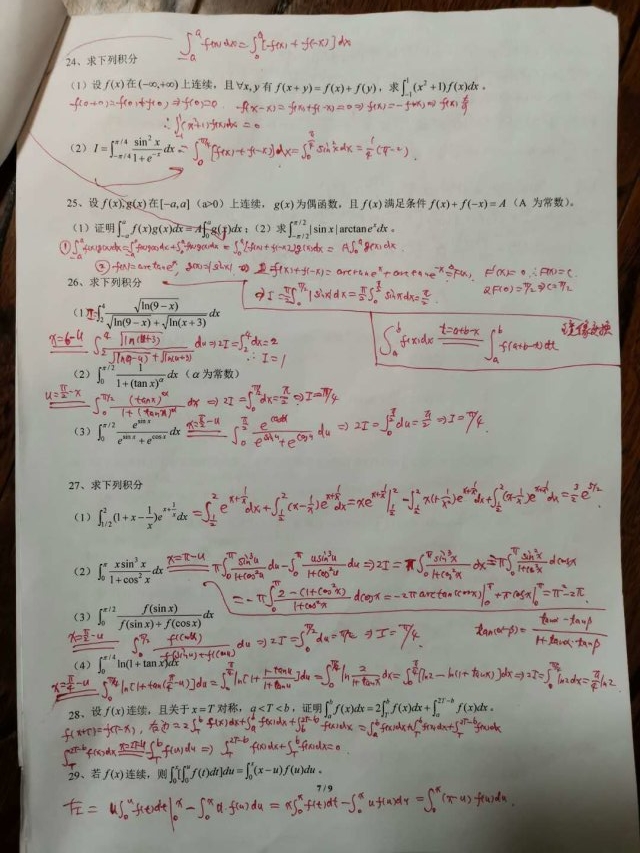 ∫_{-a}^{a} f(x)dx = ∫_0^a [f(x)+f(-x)]dx
24、求下列积分
（1）设 f(x) 在 (-∞,+∞) 上连续，且∀x,y 有 f(x+y)=f(x)+f(y)，求∫_{-1}^{1}(x²+1)f(x)dx。
f(0+0)=f(0)+f(0) ⇒ f(0)=0. f(x-x)=f(x)+f(-x)=0 ⇒ f(x)=-f(-x) ⇒ f(x) 奇
∴ ∫_{-1}^{1}(x²+1)f(x)dx = 0
（2）I=∫_{-π/4}^{π/4} sin²x/(1+e^{-x}) dx = ∫_0^{π/4}[f(x)+f(-x)]dx = ∫_0^{π/4} sin²x dx =
25、设 f(x),g(x) 在[-a,a]（a>0）上连续，g(x) 为偶函数，且 f(x) 满足条件 f(x)+f(-x)=A（A 为常数）。
（1）证明∫_{-a}^{a} f(x)g(x)dx = A∫_0^a g(x)dx；（2）求∫_{-π/2}^{π/2}|sin x|arctan e^x dx。
① ∫_{-a}^{a} f(x)g(x)dx = ∫_0^a [f(x)+f(-x)]g(x)dx = A∫_0^a g(x)dx.
② f(x)=arctan e^x, g(x)=|sin x| f(x)+f(-x)=arctan e^x + arctan e^{-x} = F(x). F'(x)=0 ∴ F(x)=C.
2F(0)=π/2 ⇒ C=π/2
26、求下列积分
⇒ I=π/2 ∫_0^{π/2}|sin x|dx = π/2 ∫_0^{π/2} sin x dx = π/2.
（1）I=∫_2^4 √ln(9-x)/(√ln(9-x)+√ln(x+3)) dx
∫_a^b f(x)dx t=a+b-x ∫_a^b f(a+b-t)dt 镜像变换
x=6-u ∫_2^4 √ln(u+3)/(√ln(9-u)+√ln(u+3)) du ⇒ 2I=∫_2^4 dx=2
∴ I=1
（2）∫_0^{π/2} 1/(1+(tan x)^α) dx（α 为常数）
u=π/2-x ∫_0^{π/2} (tan x)^α/(1+(tan x)^α) dx ⇒ 2I=∫_0^{π/2}dx=π/2 ⇒ I=π/4
（3）∫_0^{π/2} e^{sin x}/(e^{sin x}+e^{cos x}) dx x=π/2-u ∫_0^{π/2} e^{cos u}/(e^{sin u}+e^{cos u}) du ⇒ 2I=∫_0^{π/2}du=π/2 ⇒ I=π/4.
27、求下列积分
（1）∫_{1/2}^2 (1+x-1/x)e^{x+1/x}dx = ∫_{1/2}^2 e^{x+1/x}dx + ∫_{1/2}^2 (x-1/x)e^{x+1/x}dx = xe^{x+1/x}|_{1/2}^2 - ∫_{1/2}^2 x(1-1/x²)e^{x+1/x}dx + ∫_{1/2}^2 (x-1/x)e^{x+1/x}dx = 3/2 e^{5/2}
（2）∫_0^π x sin³x/(1+cos²x) dx x=π-u π∫_0^π sin³u/(1+cos²u) du - ∫_0^π u sin³u/(1+cos²u) du ⇒ 2I = π∫_0^π sin³x/(1+cos²x) dx = -π∫_0^π sin²x/(1+cos²x) dcos x
= -π∫_0^π [2-(1+cos²x)]/(1+cos²x) dcos x = -2π arctan(cos x)|_0^π + π cos x|_0^π = π²-2π.
（3）∫_0^{π/2} f(sin x)/(f(sin x)+f(cos x)) dx
x=π/2-u ∫_0^{π/2} f(cos u)/(f(sin u)+f(cos u)) du ⇒ 2I=∫_0^{π/2}du=π/2 ⇒ I=π/4.
tan(α-β)=(tanα-tanβ)/(1+tanα·tanβ)
（4）∫_0^{π/4} ln(1+tan x)dx
x=π/4-u ∫_0^{π/4} ln[1+tan(π/4-u)]du = ∫_0^{π/4} ln[1+(1-tan u)/(1+tan u)]du = ∫_0^{π/4} ln 2/(1+tan x) dx = ∫_0^{π/4}[ln2-ln(1+tan x)]dx ⇒ 2I=∫_0^{π/4} ln2 dx = π/4 ln2.
28、设 f(x) 连续，且关于 x=T 对称，a<T<b，证明∫_a^b f(x)dx = 2∫_T^b f(x)dx + ∫_a^{2T-b} f(x)dx。
f(x+T)=f(T-x), 右边=2∫_T^b f(x)dx+∫_a^b f(x)dx+∫_b^{2T-b} f(x)dx = ∫_a^b f(x)dx+∫_T^b f(x)dx+∫_T^{2T-b} f(x)dx
∫_T^{2T-b} f(x)dx x=2T-u -∫_T^b f(u)du ⇒ ∫_T^{2T-b} f(x)dx+∫_T^b f(x)dx=0.
29、若 f(x) 连续，则∫_0^x[∫_0^u f(t)dt]du = ∫_0^x (x-u)f(u)du。
7 / 9
左 = u∫_0^u f(t)dt|_0^x - ∫_0^x u·f(u)du = x∫_0^x f(t)dt - ∫_0^x u f(u)du = ∫_0^x (x-u)·f(u)du.